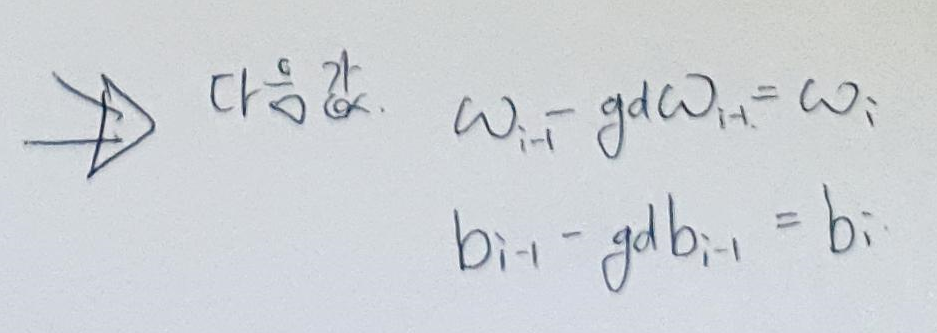 다음값. ω_{i-1} - gdω_{i-1} = ω_i
b_{i-1} - gdb_{i-1} = b_i